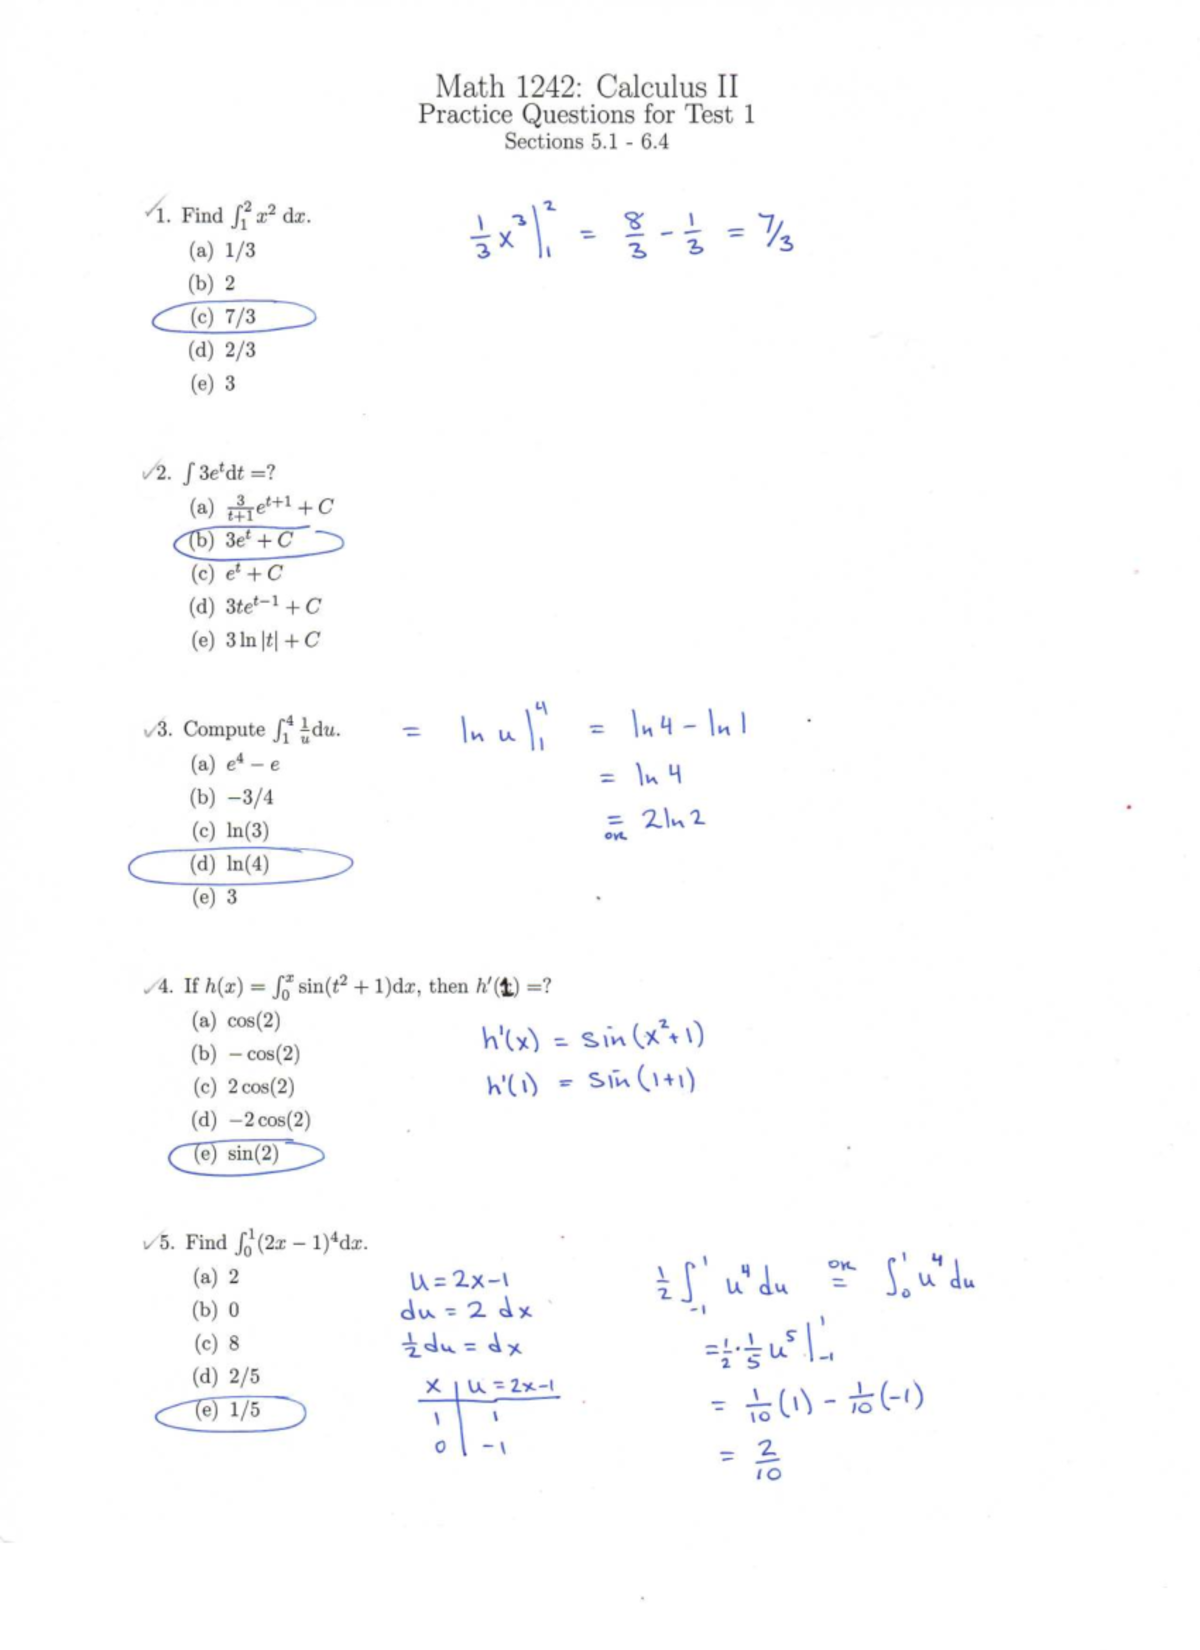 Math 1242: Calculus II
Practice Questions for Test 1
Sections 5.1 - 6.4
✓1. Find ∫₁² x² dx.
(a) 1/3
(b) 2
(c) 7/3
(d) 2/3
(e) 3
1/3 x³ |₁² = 8/3 - 1/3 = 7/3
✓2. ∫ 3eᵗdt =?
(a) 3/(t+1) eᵗ⁺¹ + C
(b) 3eᵗ + C
(c) eᵗ + C
(d) 3teᵗ⁻¹ + C
(e) 3 ln |t| + C
✓3. Compute ∫₁⁴ 1/u du. = ln u |₁⁴ = ln 4 - ln 1
= ln 4
= or 2 ln 2
(a) e⁴ − e
(b) −3/4
(c) ln(3)
(d) ln(4)
(e) 3
✓4. If h(x) = ∫₀ˣ sin(t² + 1)dx, then h′(1) =?
(a) cos(2)
(b) − cos(2)
(c) 2 cos(2)
(d) −2 cos(2)
(e) sin(2)
h'(x) = sin(x²+1)
h'(1) = sin(1+1)
✓5. Find ∫₀¹(2x − 1)⁴dx.
(a) 2
(b) 0
(c) 8
(d) 2/5
(e) 1/5
u = 2x-1
du = 2 dx
1/2 du = dx
x | u = 2x-1
1 | 1
0 | -1
1/2 ∫₋₁¹ u⁴ du or = ∫₀¹ u⁴ du
= 1/2 · 1/5 u⁵ |₋₁¹
= 1/10 (1) - 1/10 (-1)
= 2/10